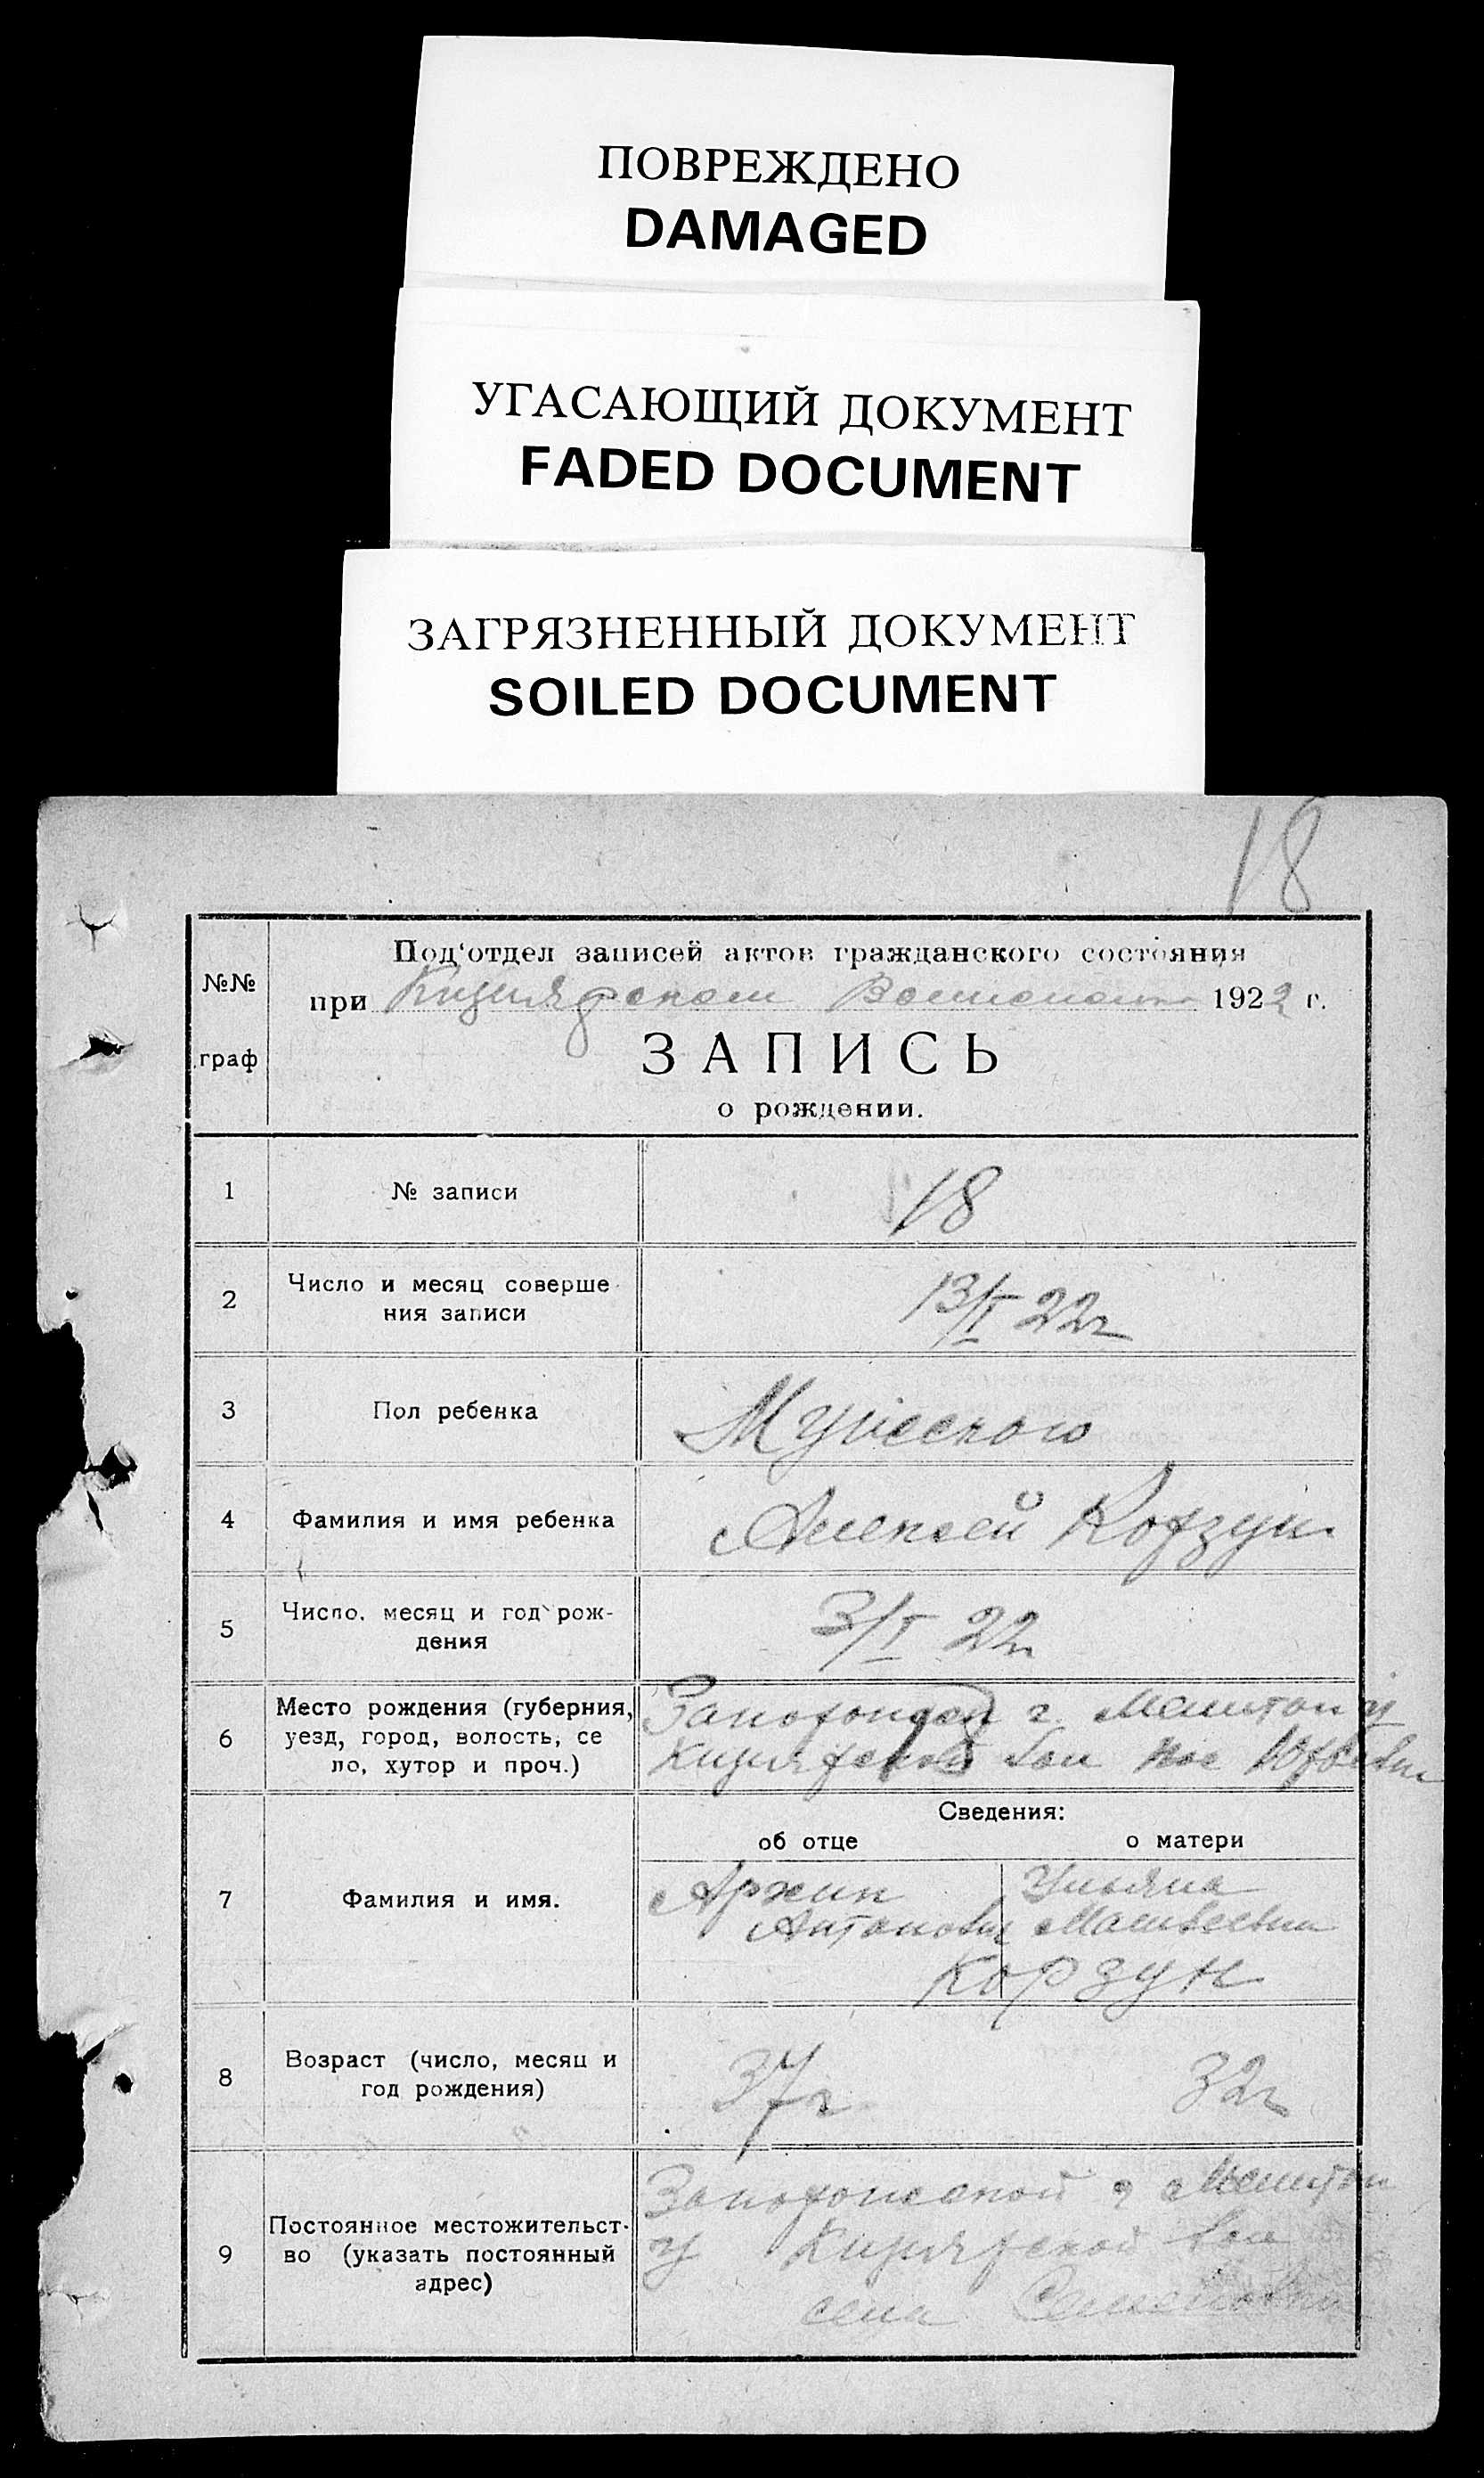 ПОВРЕЖДЕНО
DAMAGED
УГАСАЮЩИЙ ДОКУМЕНТ
FADED DOCUMENT
ЗАГРЯЗНЕННЫЙ ДОКУМЕНТ
SOILED DOCUMENT
18
№№
граф
Под'отдел записей актов гражданского состояния
при Кизиярском 1922 г.
ЗАПИСЬ
о рождении.
1 № записи 18
2 Число и месяц соверше
ния записи 13/I 22г
3 Пол ребенка Мужеского
4 Фамилия и имя ребенка Алексей Корзун
5 Число, месяц и год рож-
дения 3/I 22г
6 Место рождения (губерния,
уезд, город, волость, се
ло, хутор и проч.)
г. Мелитоп у
Кизиярской вол
Сведения:
об отце о матери
7 Фамилия и имя.
Архип Ульяна
Антонович Матвеевна
Корзун
8 Возраст (число, месяц и
год рождения) 37г 32г
9 Постоянное местожительст-
во (указать постоянный
адрес)
Запорожской г Мелитоп
у Кизиярской вол
села Семеновки